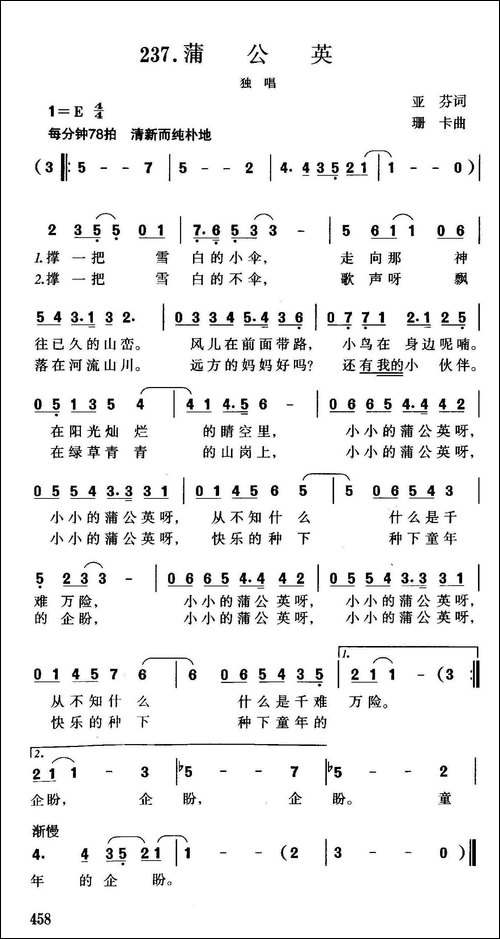 237.蒲 公 英
独 唱
1=E 4/4
亚 芬词
每分钟78拍 清新而纯朴地
珊 卡曲
(3 ‖: 5 - - 7 | 5 - - 2 | 4. 4 3 5 2 1 | 1 - - 0 )|
2 3 5 5 0 1 | 7. 6 5 3 3 - | 5 6 1 1 0 6 |
1.撑 一 把 雪 白 的 小 伞, 走 向 那 神
2.撑 一 把 雪 白 的 不 伞, 歌 声 呀 飘
5 4 3. 1 3 2. | 0 3 3 4 5. 4 3 6 | 0 7 7 1 2. 1 2 5 |
往已久的山峦。 风儿在前面带路, 小鸟在 身边呢喃。
落在河流山川。 远方的妈妈好吗? 还有我的小 伙伴。
0 5 1 3 5 4 | 4 1 4. 5 6 - | 0 6 6 5 4. 4 4 2 |
在阳光灿 烂 的晴空里, 小小的蒲公英呀,
在绿草青 青 的山岗上, 小小的蒲公英呀,
0 5 5 4 3. 3 3 1 | 0 1 4 5 6 5 | 5 0 6 5 4 3 |
小小的蒲公英呀, 从不知什 么 什么是千
小小的蒲公英呀, 快乐的种 下 种下童年
5 2 3 3 - | 0 6 6 5 4. 4 4 2 | 0 5 5 4 3. 3 3 1 |
难 万险, 小小的蒲公英呀, 小小的蒲公英呀,
的 企盼, 小小的蒲公英呀, 小小的蒲公英呀,
1.
0 1 4 5 7 6 | 6 0 6 5 4 3 5 | 2 1 1 - (3 :‖
从不知什 么 什么是千难 万险。
快乐的种 下 种下童年的
2.
2 1 1 - 3 | ♭5 - - 7 | ♭5 - - 2 |
企盼, 企 盼, 企 盼。 童
渐慢
4. 4 3 5 2 1 | 1 - - (2 | 3 - - 0 )‖
年 的 企 盼。
458